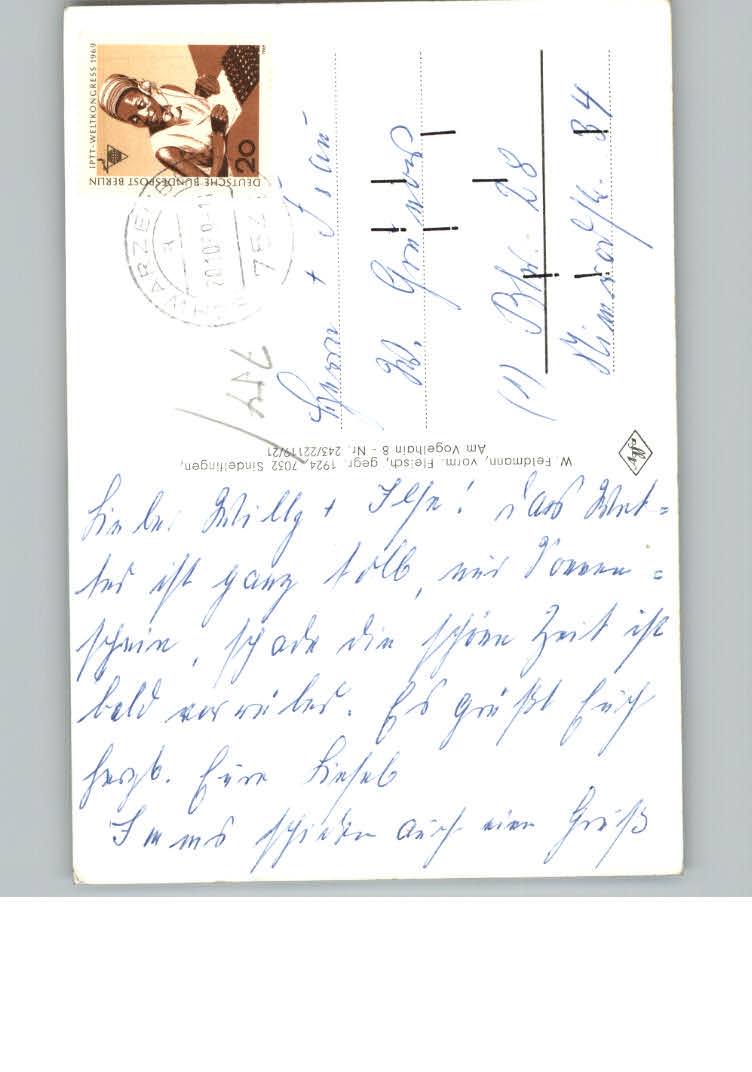 IPTT-WELTKONGRESS 1969
DEUTSCHE BUNDESPOST BERLIN
20
754
Herrn + Frau
W.
(1) Bln. 28
34
W. Feldmann, vorm. Fleisch, gegr. 1924, 7032 Sindelfingen,
Am Vogelhain 8 - Nr. 243/22119/21
Agfa
Liebe Willy + Ilse! Das Wet=
ter ist ganz toll, nur Sonnen=
schein, schade die schöne Zeit ist
bald vorrüber. Es grüßt Euch
herzl. Eure Liesel
schicken auch einen Gruß